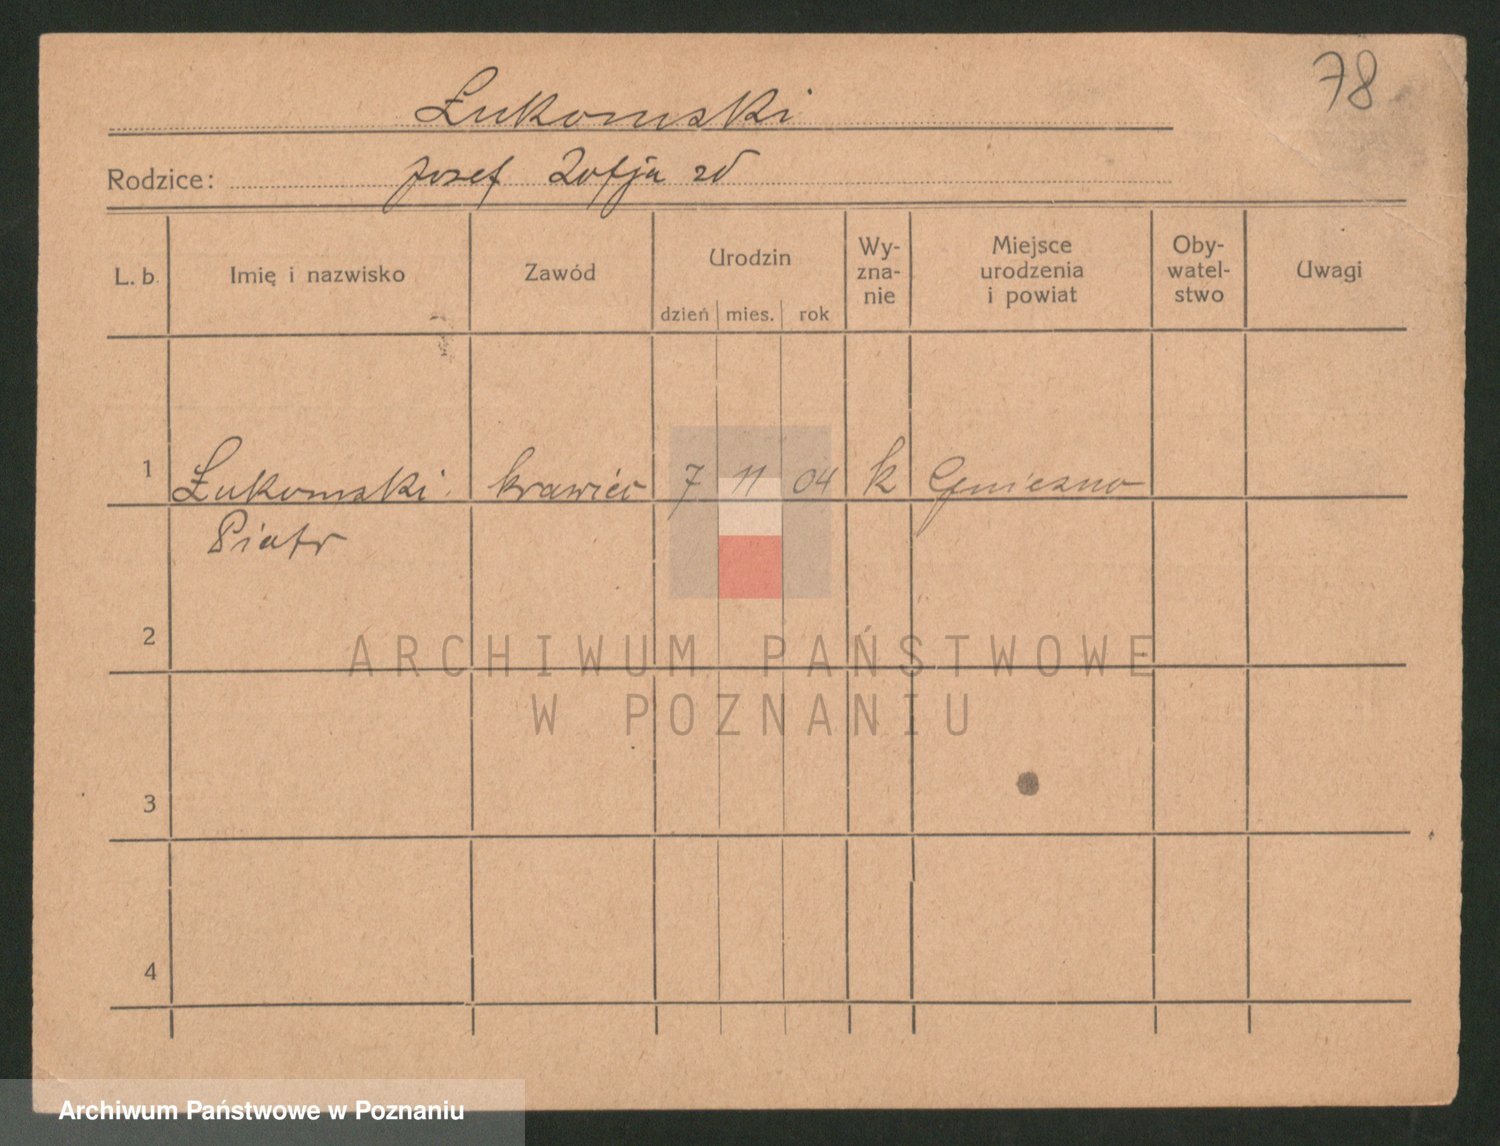 78
Łukomski
Rodzice: Jozef Zofja zd
L. b. Imię i nazwisko Zawód Urodzin Wy-zna-nie Miejsce urodzenia i powiat Oby-watel-stwo Uwagi
dzień mies. rok
1 Łukomski krawiec 7 11 04 k Gniezno
Piotr
2
ARCHIWUM PAŃSTWOWE
W POZNANIU
3
4
Archiwum Państwowe w Poznaniu